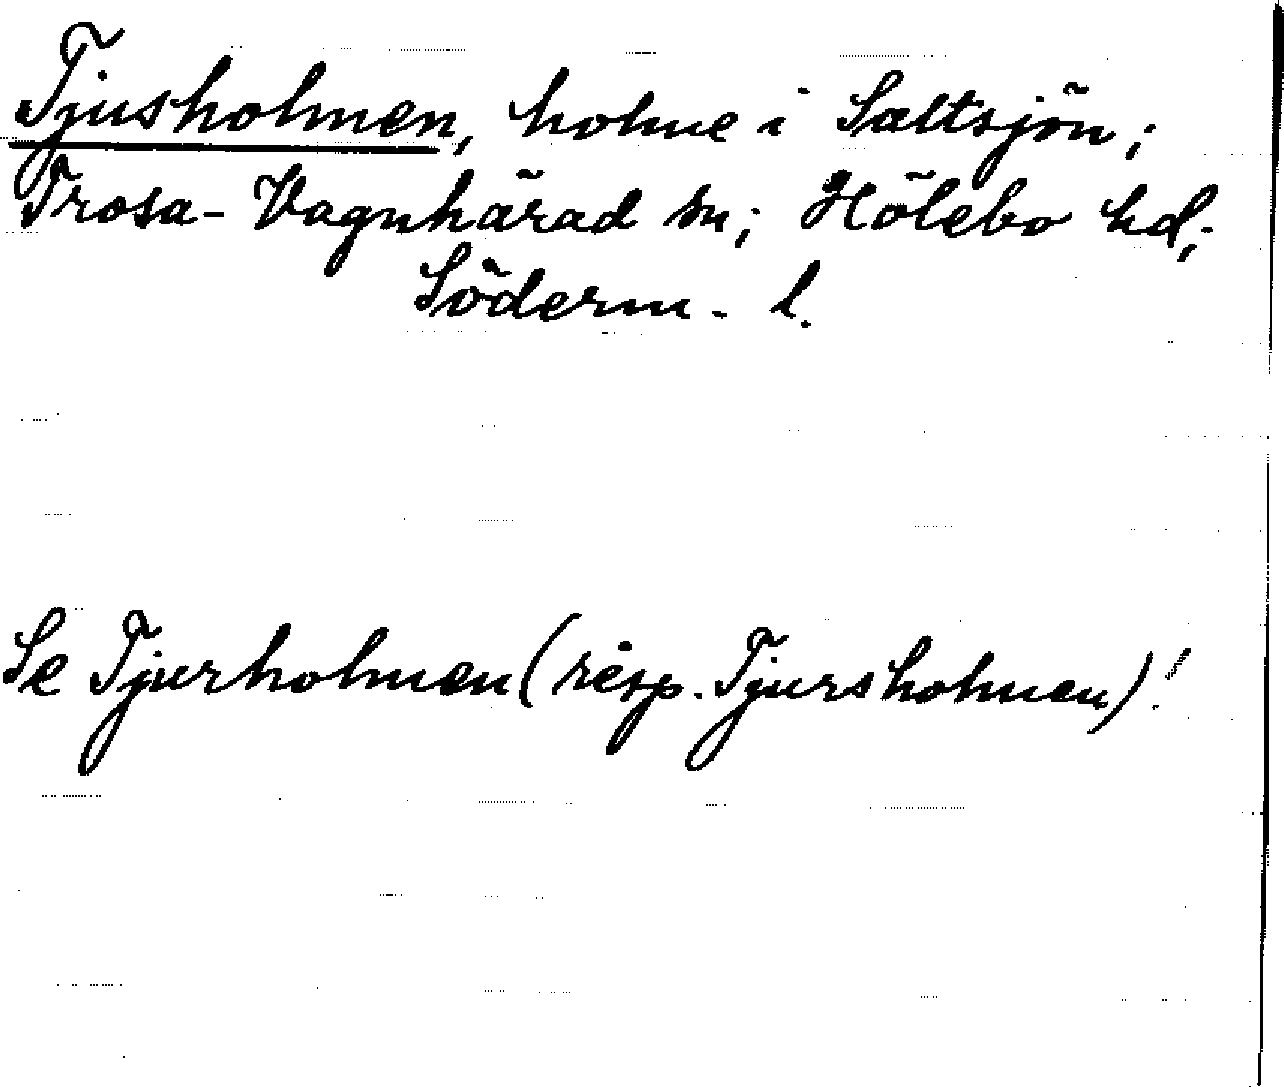 Tjusholmen, holme i Saltsjön;
Trosa-Vagnhärad sn; Hölebo hd;
Söderm. l.
Se Tjurholmen (resp. Tjursholmen)!